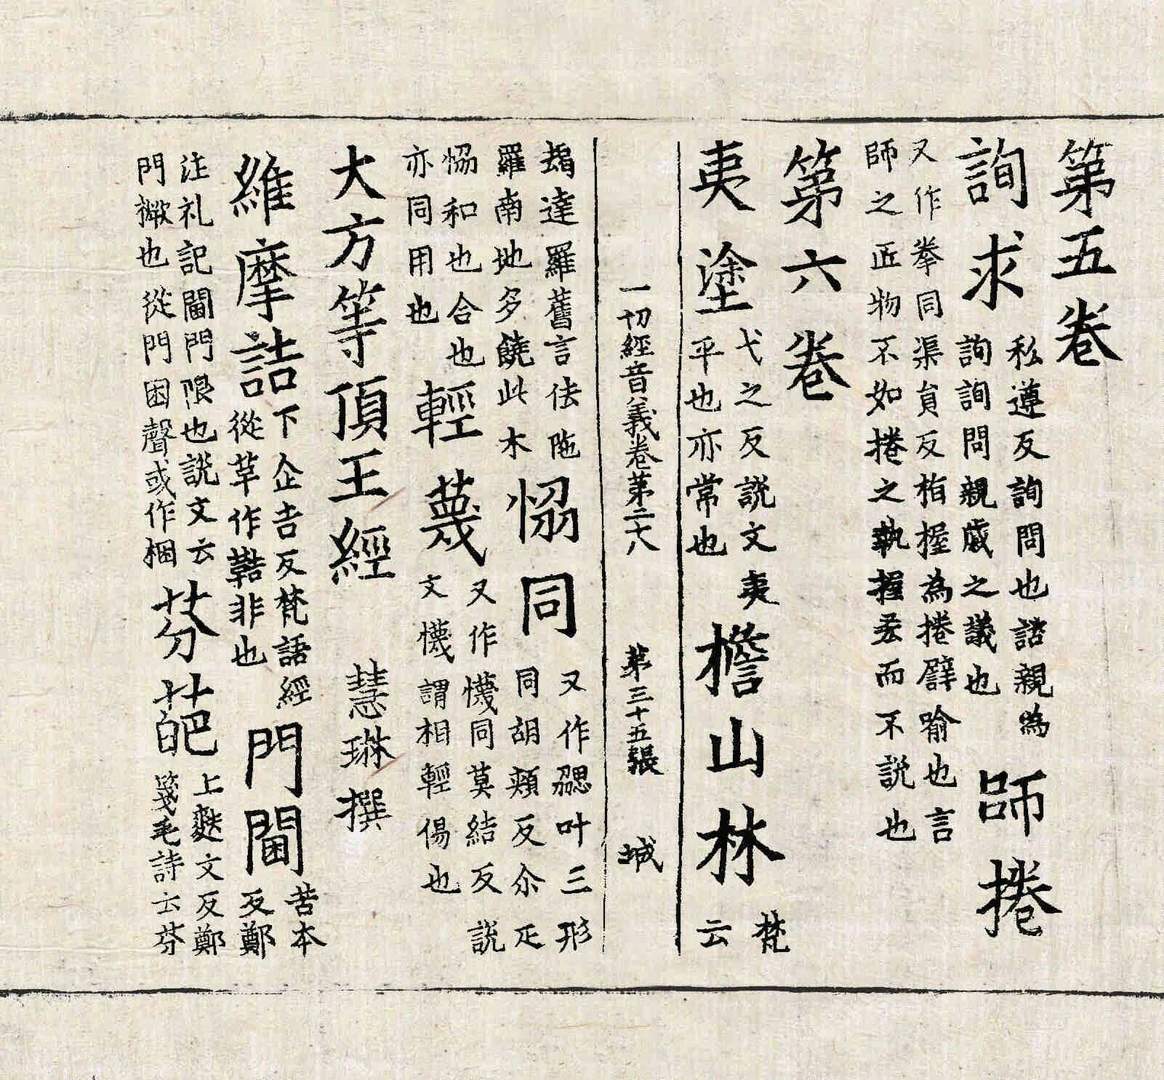 第五卷
詢求
私遵反詢問也諮親為
詢詢問親戚之議也
師捲
又作拳同渠員反柏握為捲譬喻也言
師之匠物不如捲之執握丟而不說也
第六卷
夷塗
弋之反說文夷
平也亦常也
檐山林
梵
云
一切經音義卷第二十八 第三十五張 城
達羅舊言佉陁
羅南地多饒此木
恊同
又作勰叶三形
同胡頰反尒疋
恊和也合也
亦同用也
輕蔑
又作懱同莫結反說
文懱謂相輕傷也
大方等頂王經 慧琳撰
維摩詰
下企吉反梵語經
從草作鞊非也
門閫
苦本
反鄭
注礼記閫門限也說文云
門橛也從門困聲或作梱
芬葩
上麩文反鄭
箋毛詩云芬